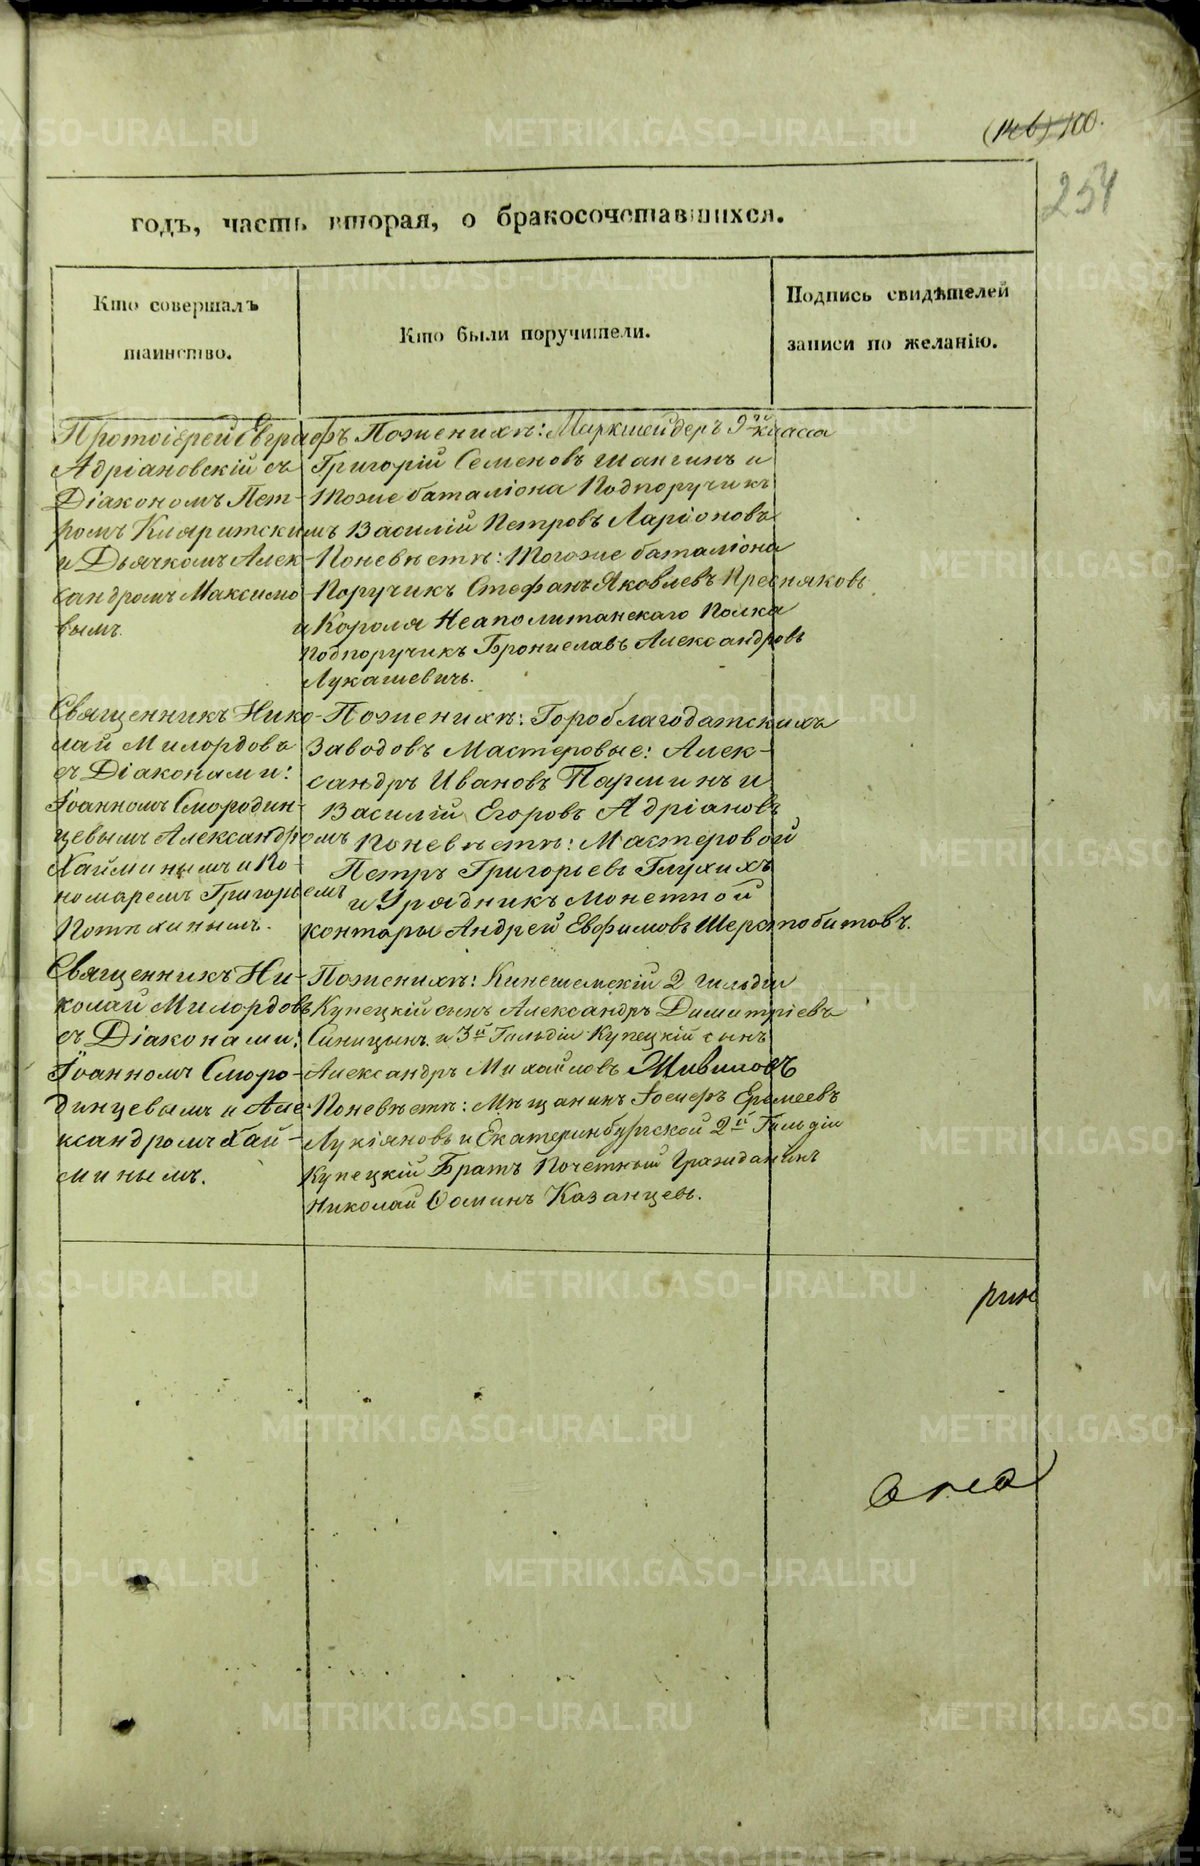 100.
254
годъ, часть вторая, о бракосочетавшихся.
Кто совершалъ
таинство.
Кто были поручители.
Подпись свидѣтелей
записи по желанію.
Протоіерей Евграфъ
Адріановскій съ
Діакономъ Пет-
ромъ Кляритскимъ
и Дьячкомъ Алек-
сандромъ Максимо
вымъ.
Поженихѣ: Маркшейдеръ 9го класса
Григорій Семеновъ Шангинъ и
тоже баталіона Подпоручикъ
Василій Петровъ Ларіоновъ
Поневѣстѣ: Тогоже баталіона
Поручикъ Стефанъ Яковлевъ Пресняковъ
и Короля Неаполитанскаго Полка
Подпоручикъ Брониславъ Александровъ
Лукашевичъ.
Священникъ Нико-
лай Милордовъ
съ Діаконами:
Іоанномъ Смородин-
цевымъ Александромъ
Хайминымъ и По
номаремъ Григорьемъ
Потѣхинымъ.
Поженихѣ: Гороблагодатскихъ
Заводовъ Мастеровые: Алек-
сандръ Ивановъ Парминъ и
Василій Егоровъ Адріановъ
Поневѣстѣ: Мастеровой
Петръ Григорьевъ Глухихъ
и Урядникъ Монетной
конторы Андрей Евфимовъ Шерстобитовъ.
Священникъ Ни-
колай Милордовъ
съ Діаконами:
Іоанномъ Сморо-
динцевымъ и Але-
ксандромъ Хай-
минымъ.
Поженихѣ: Кинешемскій 2 гильдіи
Купецкій сынъ Александръ Димитріевъ
Синицынъ и 3й Гильдіи Купецкій сынъ
Александръ Михайловъ Живиловъ
Поневѣстѣ: Мѣщанинъ Іосифъ Еремеевъ
Лукіяновъ и Екатеринбургской 2й Гильдіи
Купецкій Братъ Почетный Гражданинъ
Николай Ѳоминъ Казанцевъ.
METRIKI.GASO-URAL.RU